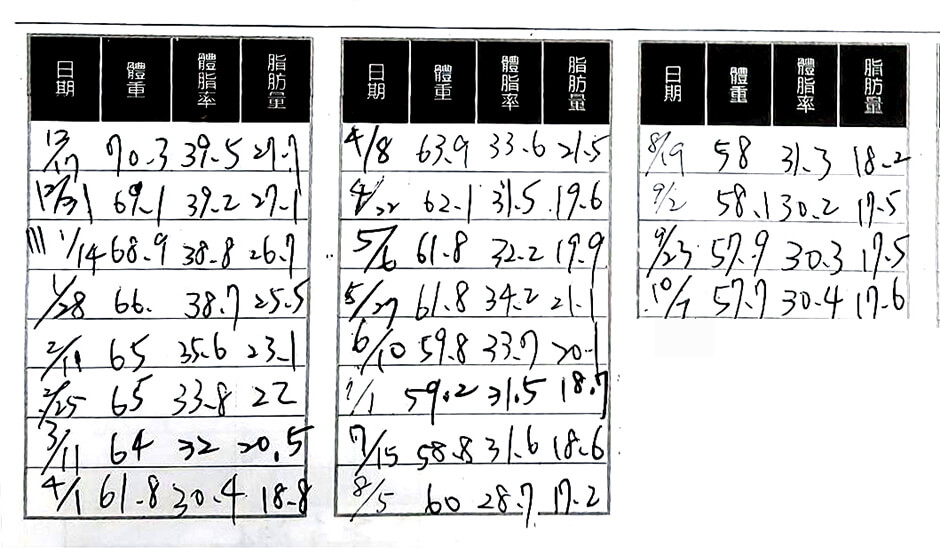 日期 體重 體脂率 脂肪量
12/17 70.3 39.5 27.7
12/31 69.1 39.2 27.1
111 1/14 68.9 38.8 26.7
1/28 66. 38.7 25.5
2/11 65 35.6 23.1
2/25 65 33.8 22
3/11 64 32 20.5
4/1 61.8 30.4 18.8
日期 體重 體脂率 脂肪量
4/8 63.9 33.6 21.5
4/22 62.1 31.5 19.6
5/6 61.8 32.2 19.9
5/27 61.8 34.2 21.1
6/10 59.8 33.7 20.1
7/1 59.2 31.5 18.7
7/15 58.8 31.6 18.6
8/5 60 28.7 17.2
日期 體重 體脂率 脂肪量
8/19 58 31.3 18.2
9/2 58.1 30.2 17.5
9/23 57.9 30.3 17.5
10/7 57.7 30.4 17.6